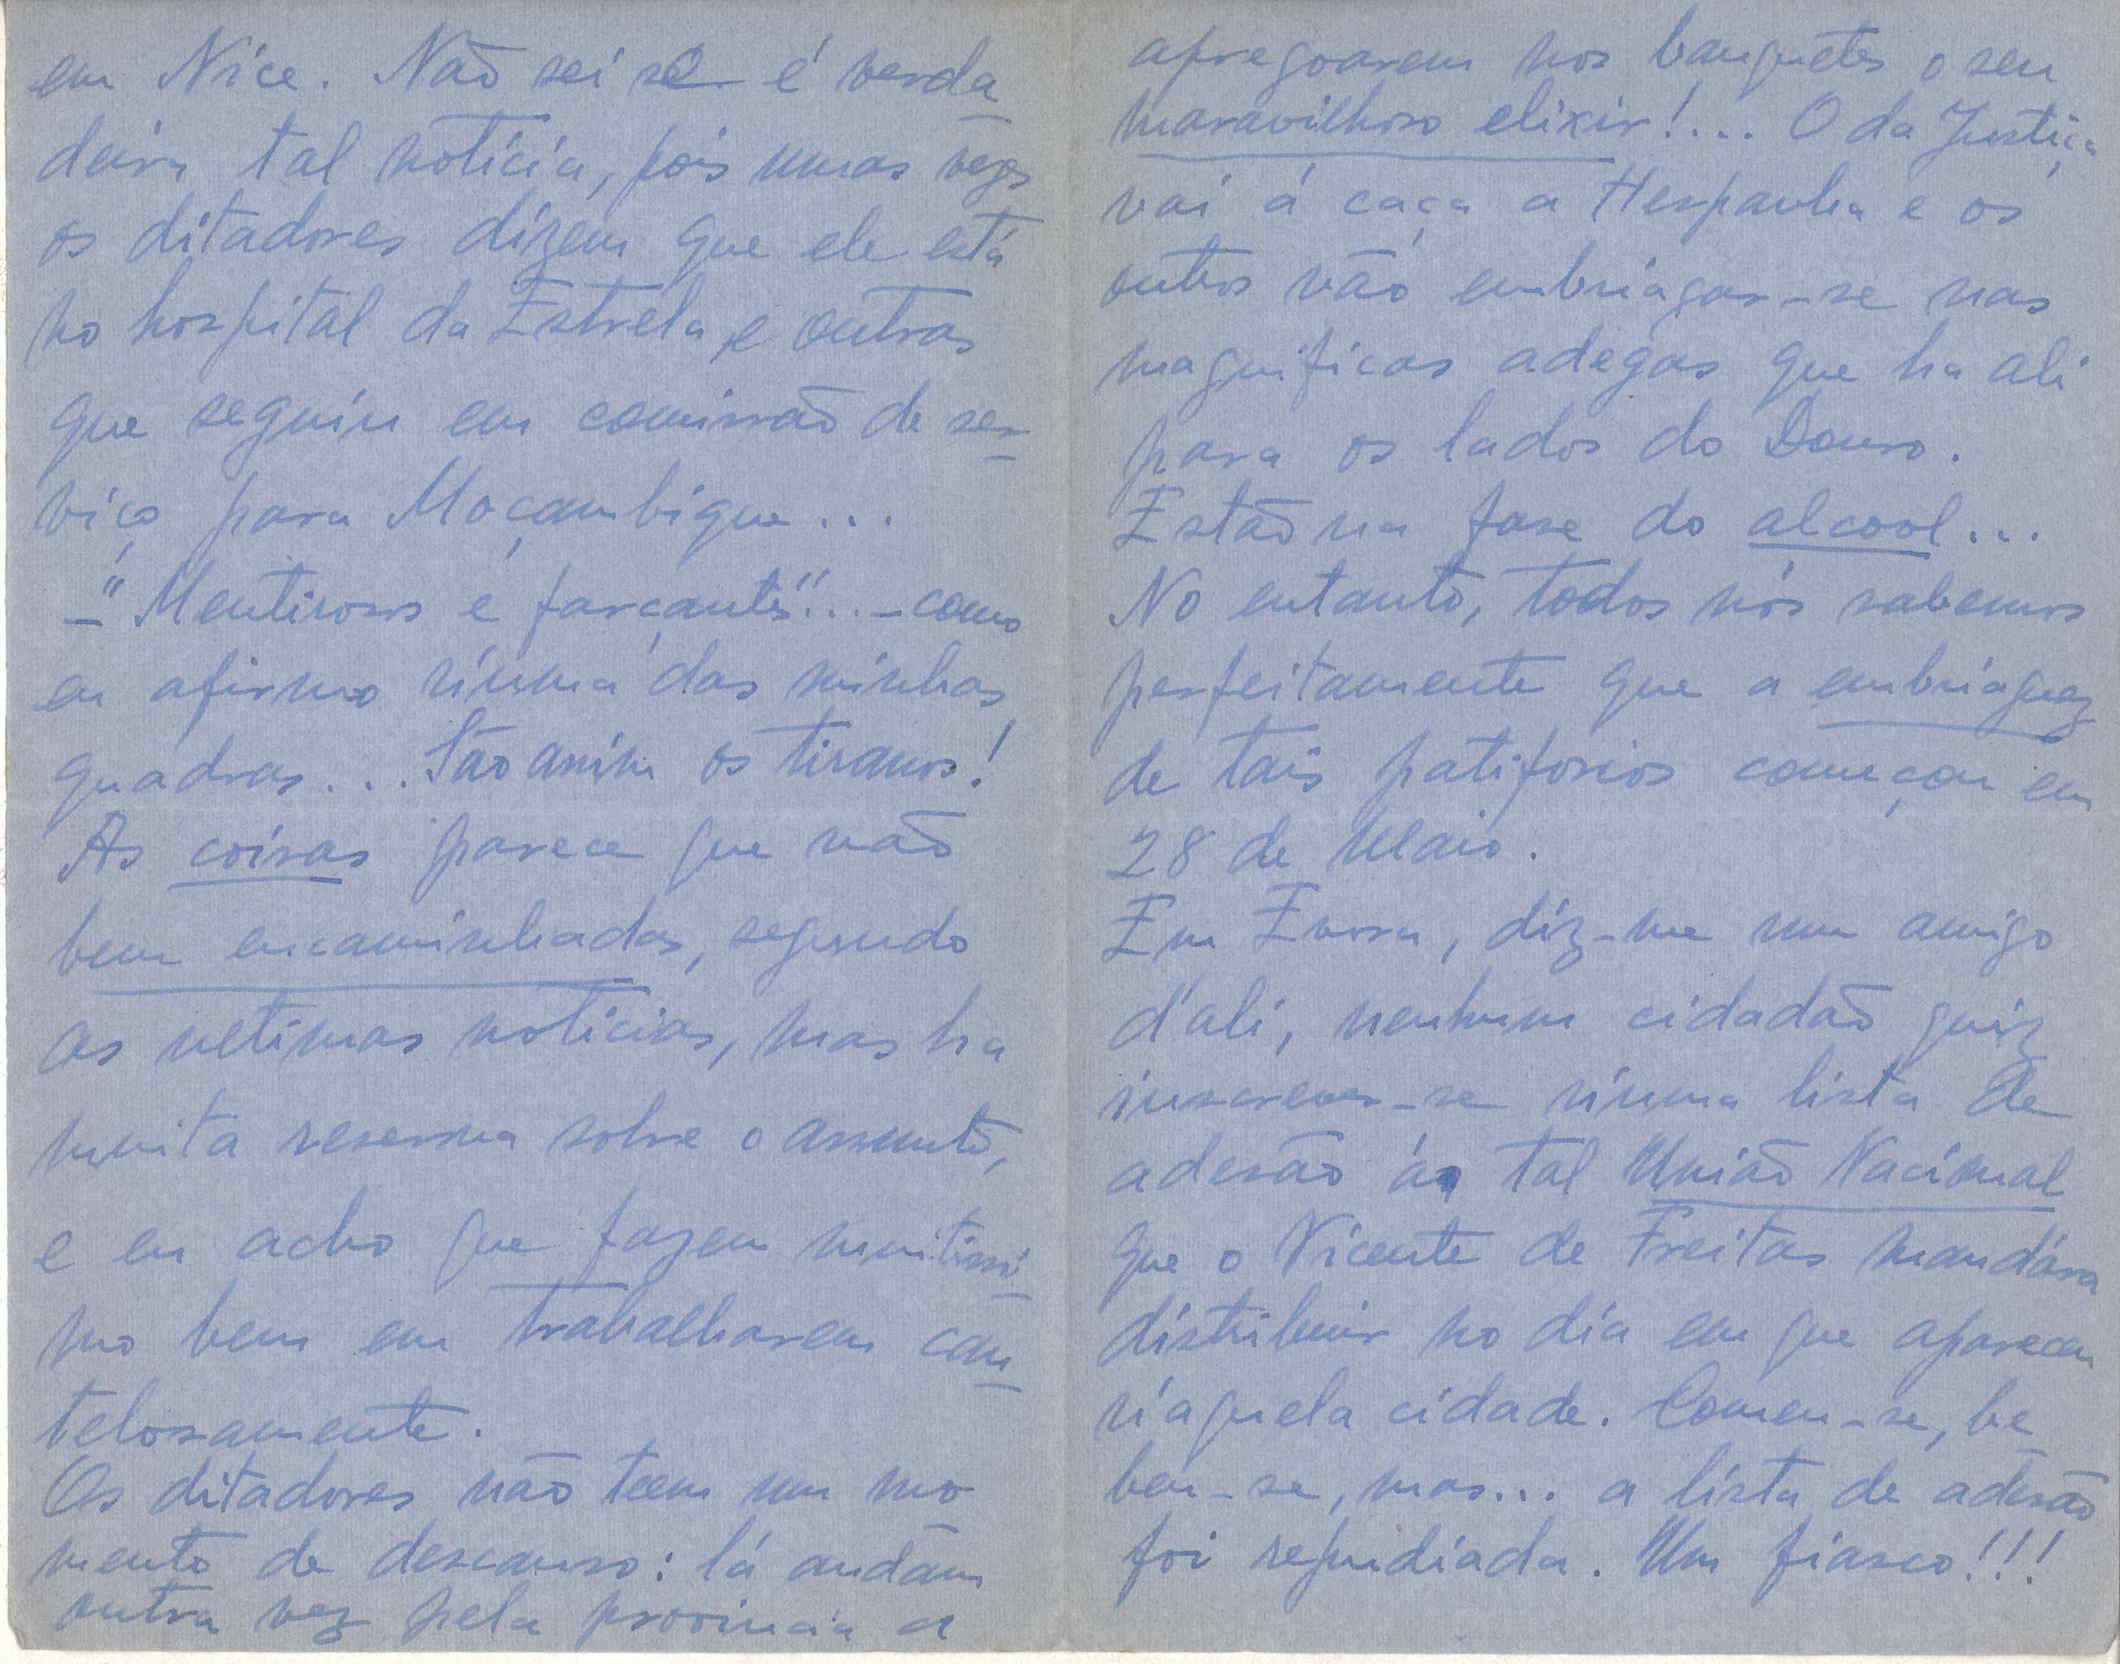 em Nice. Não sei se é verda
deira tal notícia, pois umas vezes
os ditadores dizem que ele está
no hospital da Estrela, e outras
que seguiu em comissão de ser
viço para Moçambique...
-"Mentirosos e farçantes"... - como
eu afirmo n'uma das minhas
quadras... São assim os tiranos!
As coisas parece que vão
bem encaminhadas, segundo
as ultimas noticias, mas ha
muita reserva sobre o assunto,
e eu acho que fazem muitissi
mo bem em trabalharem cau
telosamente.
Os ditadores não teem um mo
mento de descanso: lá andam
outra vez pela provincia a
apregoarem nos banquetes o seu
maravilhoso elixir!... O da Justiça
vai á caça a Hespanha e os
outros vão embriagar-se nas
magnificas adegas que ha ali
para os lados do Douro.
Estão na fase do alcool...
No entanto, todos nós sabemos
perfeitamente que a embriaguez
de tais patiforios começou em
28 de Maio.
Em Evora, diz-me um amigo
d'ali, nenhum cidadão quiz
inscrever-se n'uma lista de
adesão á tal União Nacional
que o Vicente de Freitas mandára
distribuir no dia em que apareceu
n'aquela cidade. Comeu-se, be
beu-se, mas... a lista de adesão
foi repudiada. Um fiasco!!!